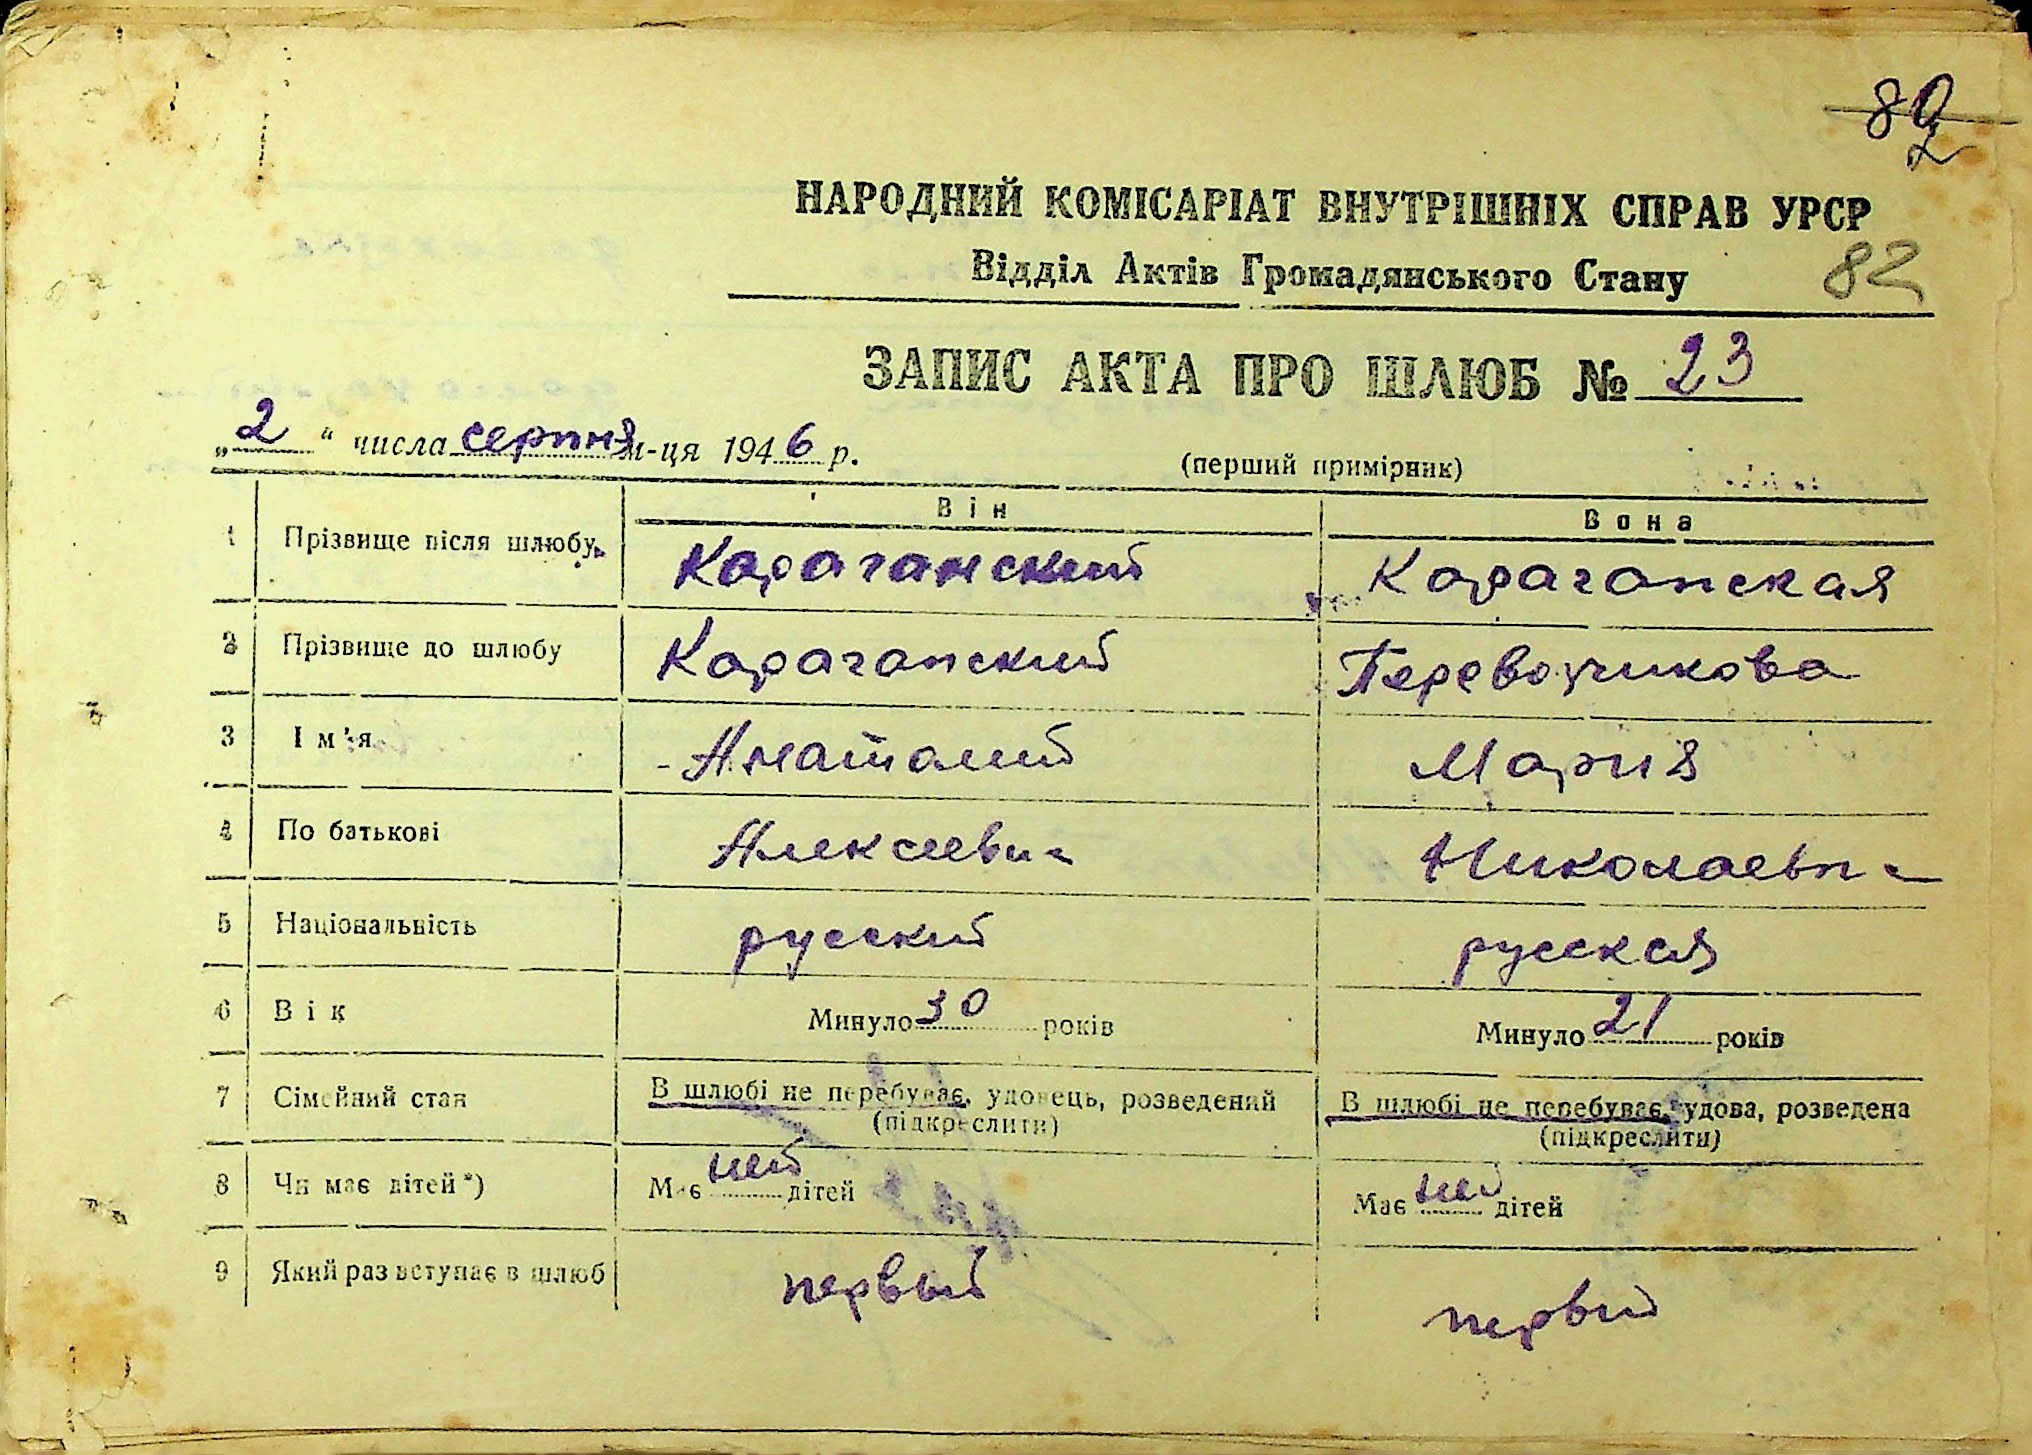 82
НАРОДНИЙ КОМІСАРІАТ ВНУТРІШНІХ СПРАВ УРСР
Відділ Актів Громадянського Стану
82
ЗАПИС АКТА ПРО ШЛЮБ № 23
„2“ числа серпня м-ця 1946 р.
(перший примірник)
Він Вона
1 Прізвище після шлюбу Караганский Караганская
2 Прізвище до шлюбу Караганский Перевозчикова
3 Ім'я Анатолий Мария
4 По батькові Алексеевич Николаевн
5 Національність русский русская
6 Вік Минуло 30 років Минуло 21 років
7 Сімейний стан В шлюбі не перебуває, удовець, розведений В шлюбі не перебуває, удова, розведена
(підкреслити) (підкреслити)
8 Чи має дітей*) Має нет дітей Має нет дітей
9 Який раз вступає в шлюб первый первый